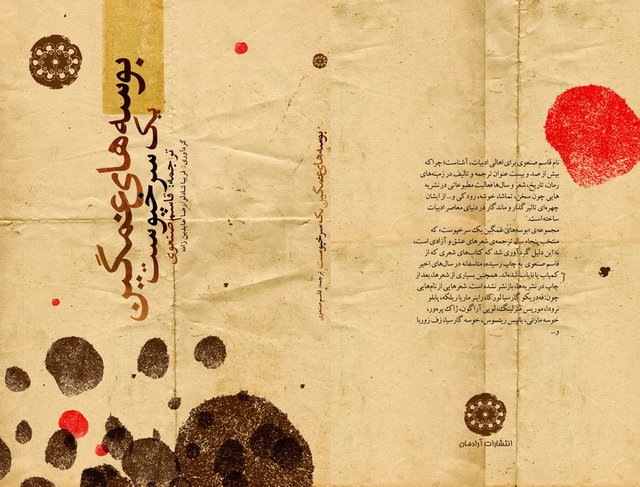 بوسه‌های غمگین
یک سرخپوست
ترجمه: قاسم صنعوی
گردآوری: فریبا شادلو، رضا عابدین زاده
بوسه‌های غمگین یک سرخپوست ترجمه: قاسم صنعوی
نام قاسم صنعوی برای اهالی ادبیات، آشناست؛ چرا که
بیش از صد و بیست عنوان ترجمه و تالیف در زمینه‌های
رمان، تاریخ، شعر و سال‌ها فعالیت مطبوعاتی در نشریه
هایی چون سخن، تماشا، خوشه، رودکی و... از ایشان
چهره‌ای تاثیر گذار و ماندگار در دنیای معاصر ادبیات
ساخته است.
مجموعه‌ی «بوسه‌های غمگین یک سرخپوست» که
منتخب پنجاه سال ترجمه‌ی شعرهای عشق و آزادی است،
به این دلیل گردآوری شد که کتاب‌های شعری که از
قاسم صنعوی به چاپ رسیده، متاسفانه در سال‌های اخیر
کمیاب یا نایاب شده‌اند. همچنین بسیاری از شعرها، بعد از
چاپ در نشریه‌ها، بازنشر نشده است. شعرهایی از نام‌هایی
چون: فدریکو گارسیا لورکا، راینر ماریا ریلکه، پابلو
نرودا، موریس مترلینگ، لویی آراگون، ژاک پره‌ور،
خوسه مارتی، یانیس ریتسوس، خوسه گارسیا، زف زوربا
و...
انتشارات آرادمان